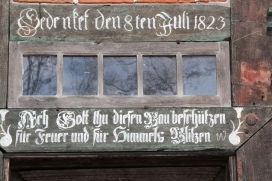 Gedenket den 8ten Juli 1823
Ach Gott thu diesen Bau beschützen
für Feuer und für Himmels Blitzen